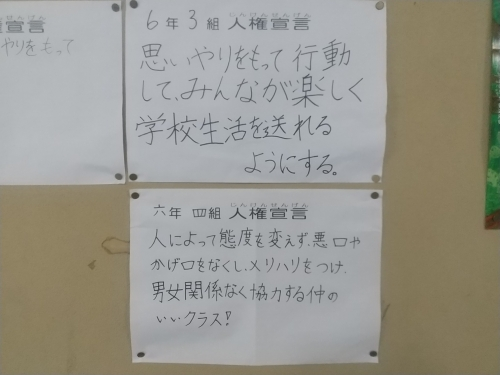 権宣言
やりをもって
6年3組 人権宣言
思いやりをもって行動
して、みんなが楽しく
学校生活を送れる
ようにする。
六年 四組 人権宣言
人によって態度を変えず、悪口や
かげ口をなくし、メリハリをつけ、
男女関係なく協力する仲の
いいクラス!